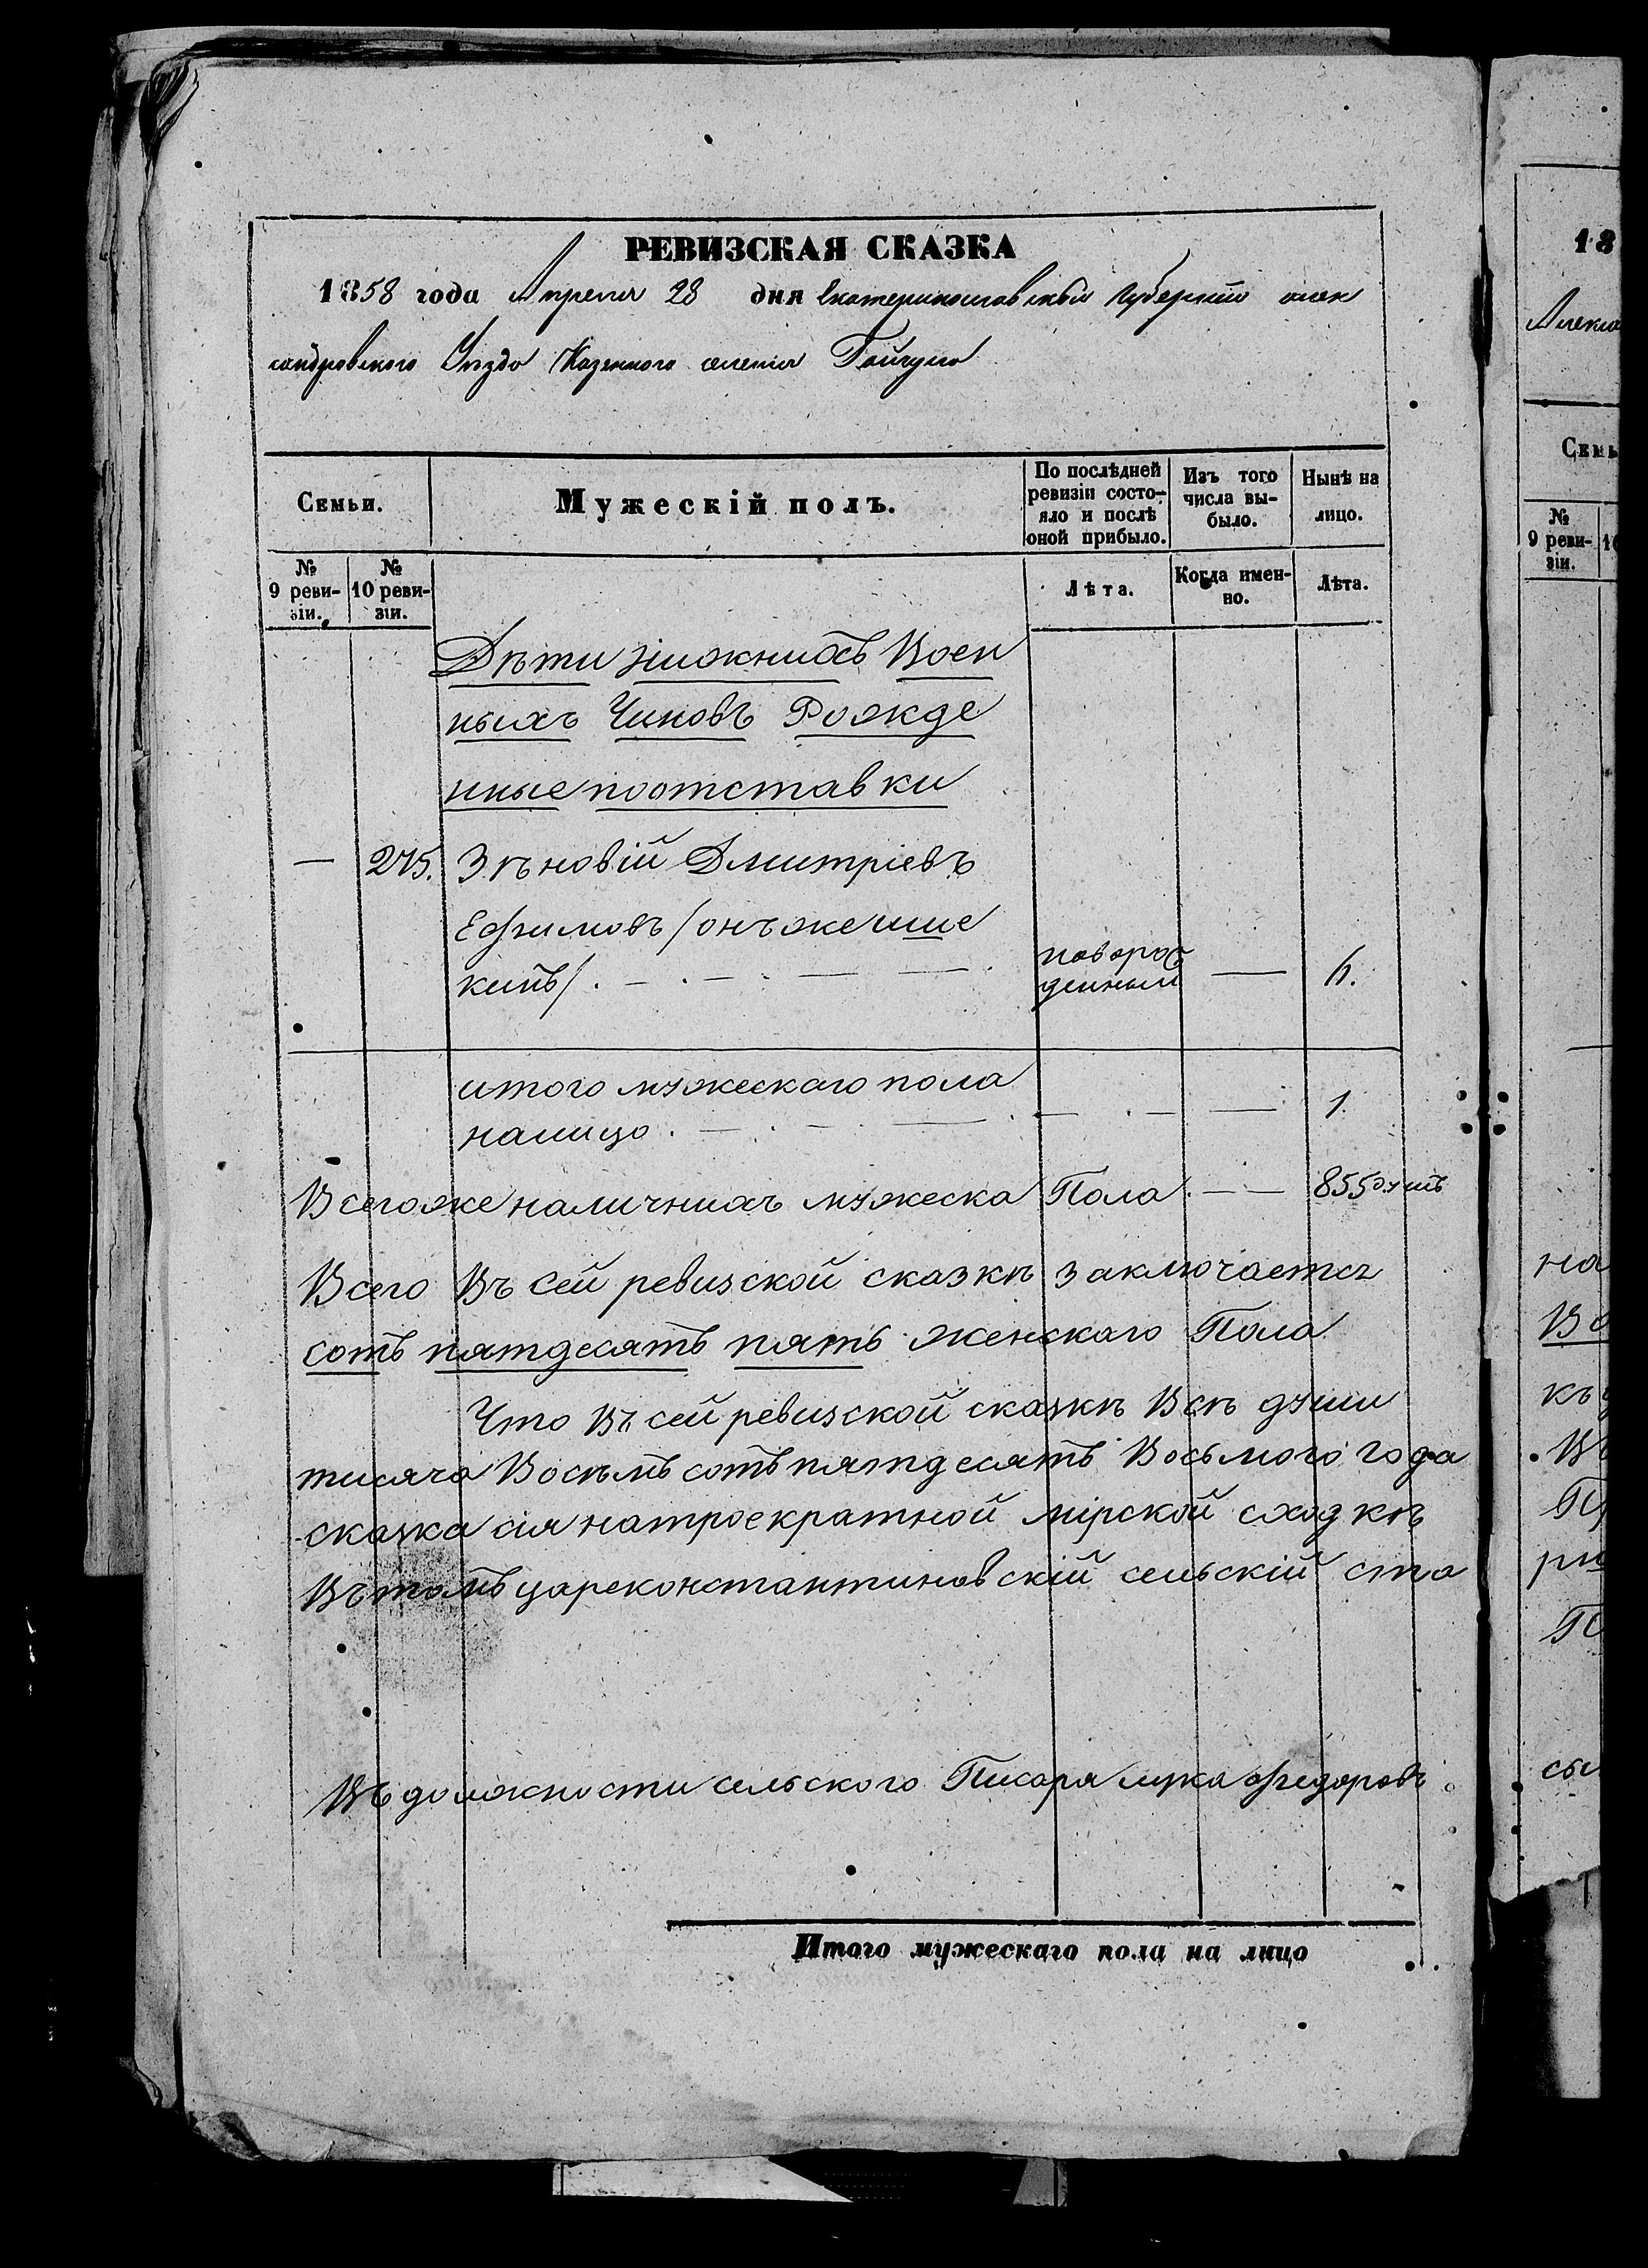 РЕВИЗСКАЯ СКАЗКА
1858 года Апреля 28 дня Екатеринославской Губернии алек
сандровского Уезда Казенного селения Гайчула
Семьи.
Мужескій полъ.
По послѣдней ревизіи состо-
яло и послѣ
оной прибыло.
Изъ того
числа вы-
было.
Нынѣ на
лицо.
№
9 реви-
зіи.
№
10 реви-
зіи.
Лѣта.
Когда имен-
но.
Лѣта.
Дѣти нижнихъ Воен
ныхъ Чиновъ Рожде
нные поотставки
— 275. Зѣновій Дмитріевъ
Ефимовъ /онъже
новорож
денный — 6.
итого мужескаго пола
налицо. — — — 1.
Всегоже наличнихъ мужеска Пола — — 855 душъ
Всего Въ сей ревизской сказкѣ заключается
сотъ пятдесятъ пять женскаго Пола
Что Въ сей ревизской сказкѣ Всѣ души
тисяча Восѣмъ сотъ пятдесятъ Восьмого года
сказка сія натроекратной мірской сходкѣ
Вътомъ цареконстантиновскій сельскій ста
Въ должности сельского Писаря лука Федоровъ
Итого мужескаго пола на лицо
18
Алекса
Семь
№
9 реви-
зіи.
10
на
Во
къ
Въ